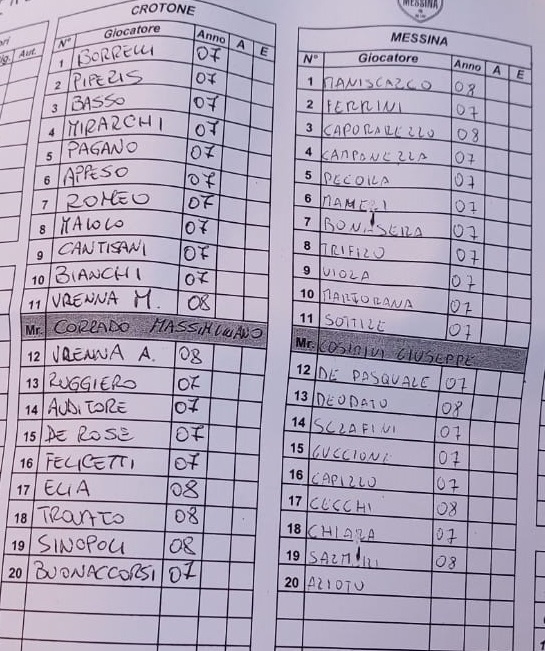 MESSINA
CROTONE
N° Giocatore Anno A E
1 BORRELLI 07
2 PIPERIS 07
3 BASSO 07
4 MIRARCHI 07
5 PAGANO 07
6 APPESO 07
7 ROMEO 07
8 MAIOLO 07
9 CANTISANI 07
10 BIANCHI 07
11 VRENNA M. 08
Mr. CORRADO MASSIMILIANO
12 VRENNA A. 08
13 RUGGIERO 07
14 AUDITORE 07
15 DE ROSE 07
16 FELICETTI 07
17 ELIA 08
18 TROVATO 08
19 SINOPOLI 08
20 BUONACCORSI 07
MESSINA
N° Giocatore Anno A E
1 MANISCALCO 08
2 FERRINI 07
3 CAPORARELLO 08
4 CAMPANELLA 07
5 PECORA 07
6 MAMELI 07
7 BONASERA 07
8 TRIFIRO 07
9 VIOLA 07
10 MARTORANA 07
11 SOTTILE 07
Mr. COSIMINI GIUSEPPE
12 DE PASQUALE 07
13 DEODATO 08
14 SERAFINI 07
15 GUCCIONE 07
16 CAPILLO 07
17 CECCHI 08
18 CHIARA 07
19 08
20